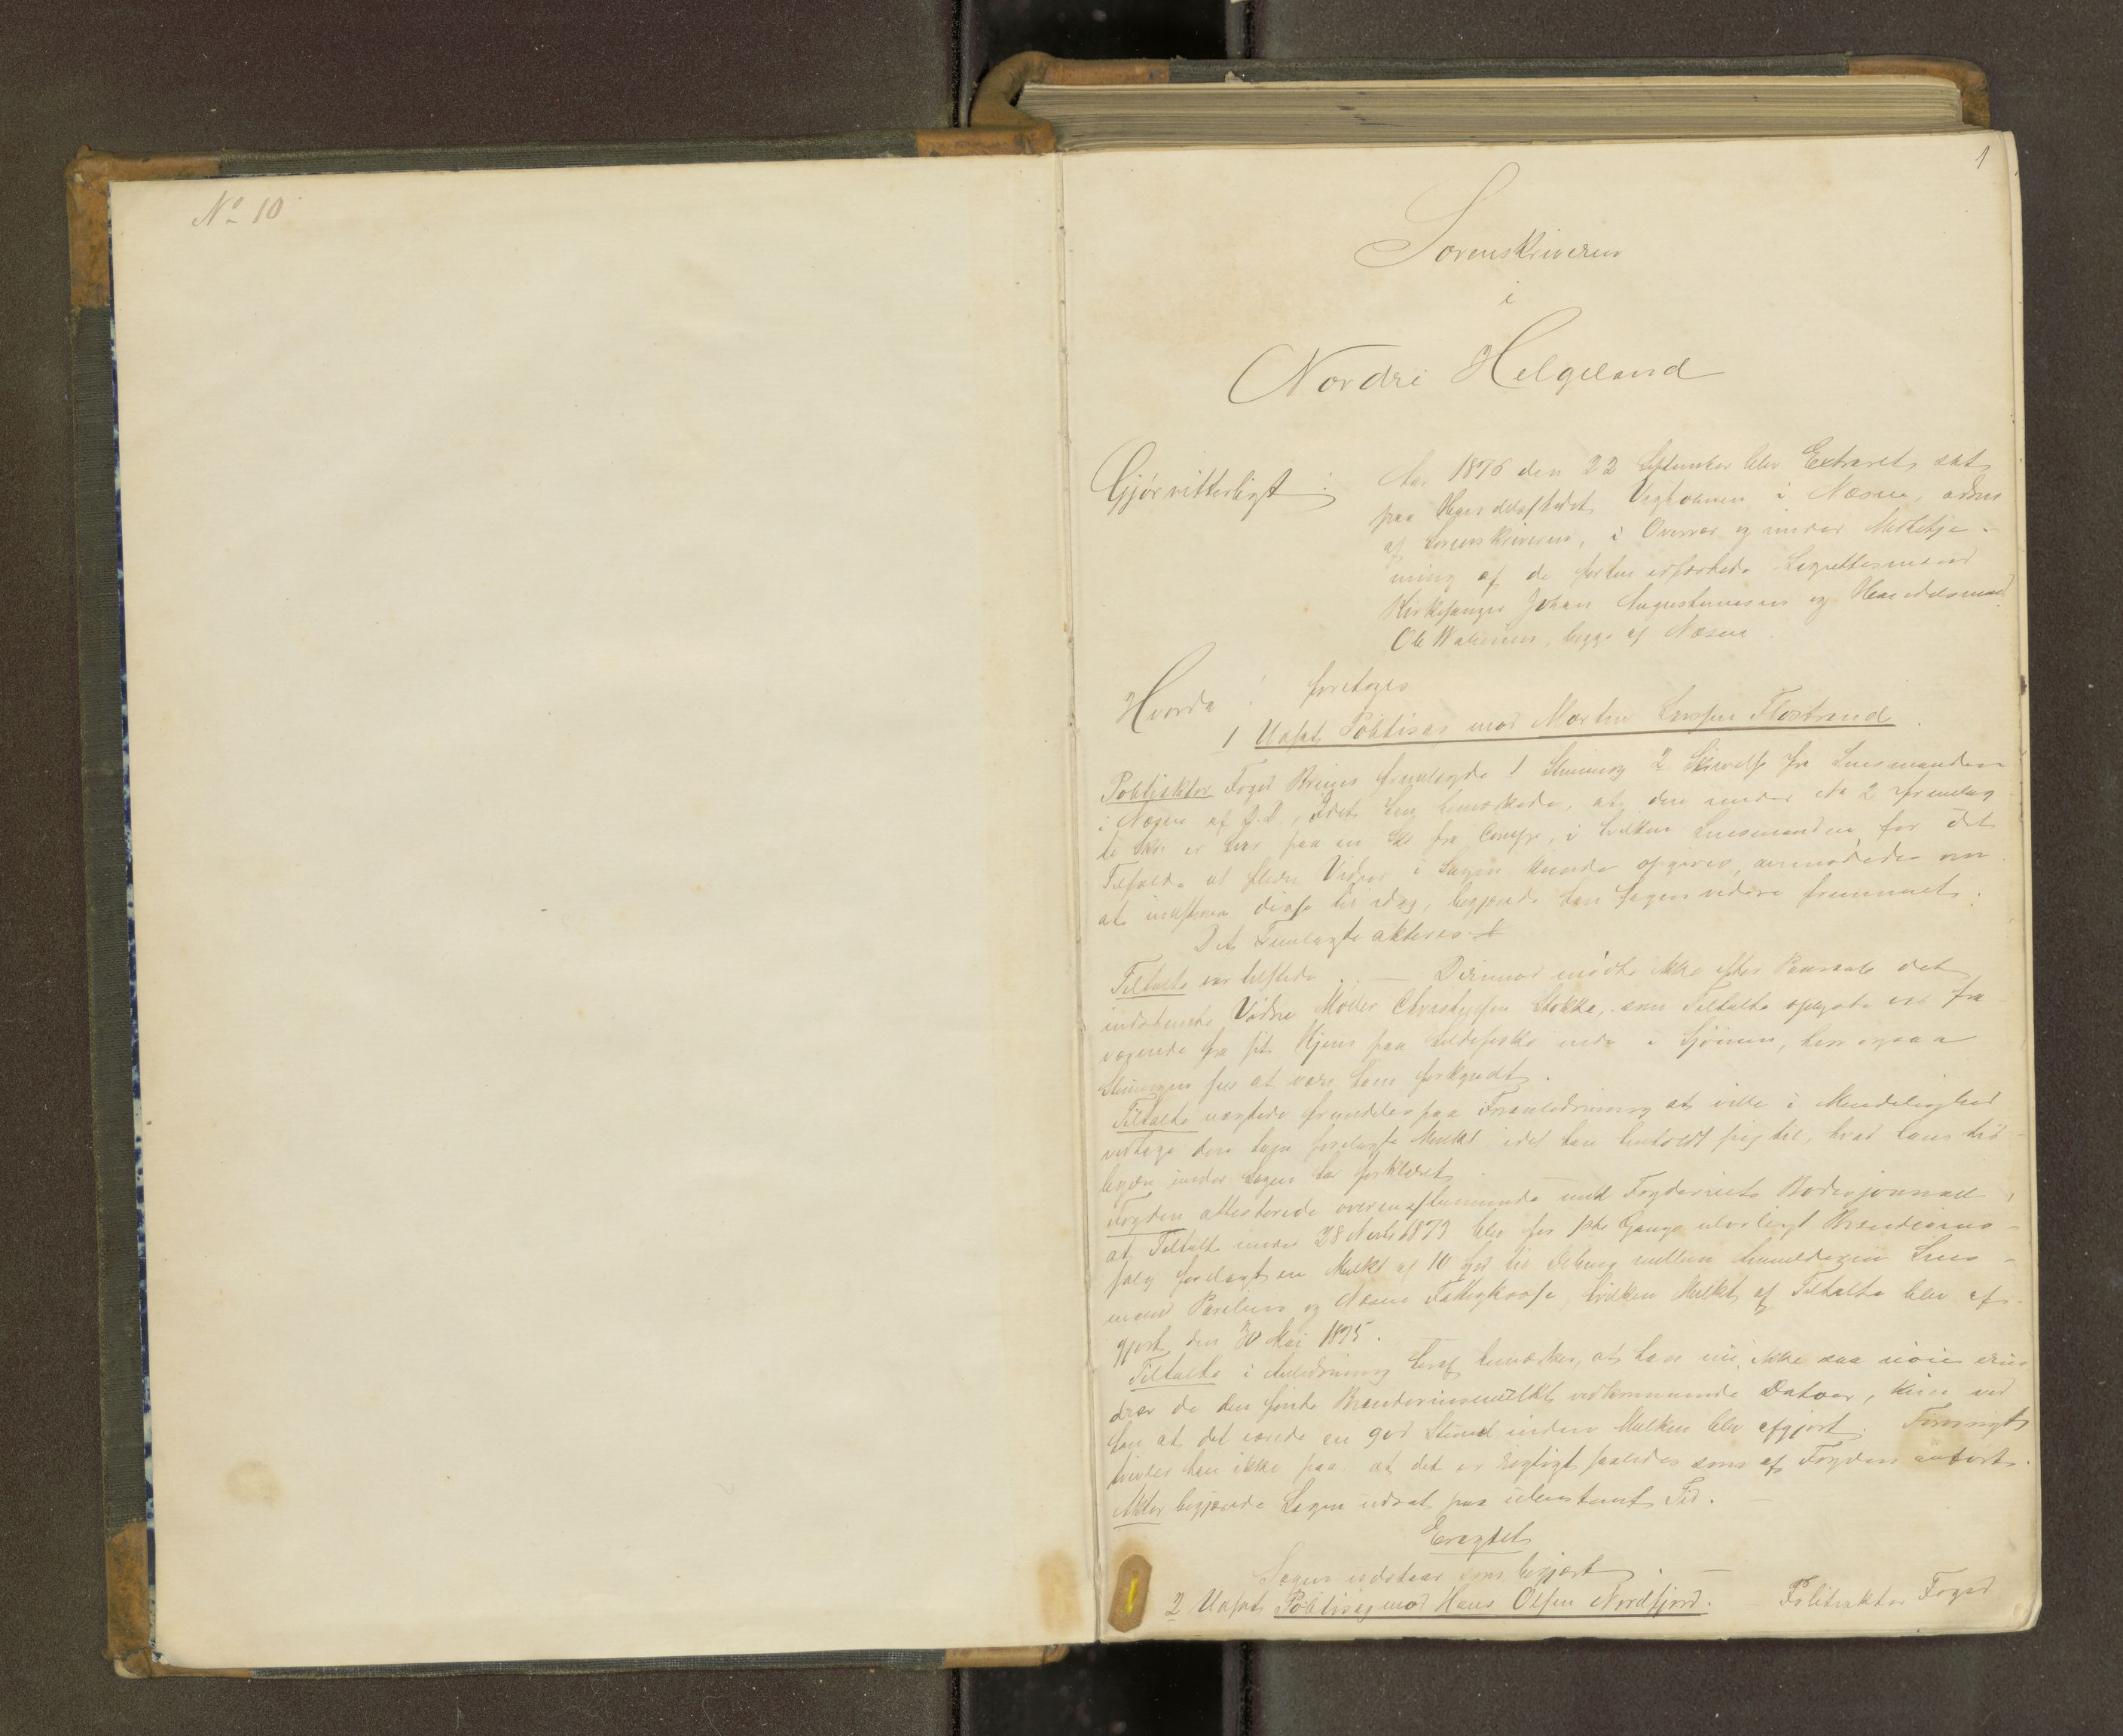 No 10
1
Sorenskriveren
i
Nordre Helgeland
Gjør vitterligt:
Aar 1876 den 22 September blev Extraret sat
paa Handelsstedet Vigholmen i Næsne, adm
af Sorenskriveren, i Overvær og under Medbetje-
ning af de forhen edfæstede Lagrettesmænd
Kirkesanger Johan Augustinusen og Handelsmand
Ole, begge af Næsne
Hvorda! foretoges
1 Uafsat Politisag mod Morten Larsen Flostrand
Politiaktor Foged fremlagde 1 Stevning 2 Skrivelse fra Lensmanden
i Næsne af J.D., idet han bemærkede, at den under No 2 fremlag
te Skr. er Svar paa en Skr fra Comp, i hvilken Lensmanden for det
Tilfælde at flere Vidner i Sagen kunde opgives, anmodedes om
at indstevne disse til idag, begjærede han Sagen videre fremmet.
Det Fremlagte akteres
Tiltalte var tilstede. — Derimod mødte ikke efter Paaraab det
indstevnte Vidne Møller Christophersen Stokke, som Tiltalte opgav at være fra
værende fra sit Hjem paa Sildefiske ude i Sjönen, han ogsaa
Stevningen sees at være ham forkyndt.
Tiltalte nægtede fremdeles paa Foranledning at ville i Mindelighed
vedtage den ham forelagte Mulkt idet han henholdt sig til, hvad han tid
ligere under Sagen har forklaret
Fogden attesterede overensstemmende med Fogderiets Bødejournal,
at Tiltalte under 28 1873 blev for 1ste Gangs ulovligt Brændevins-
salg forelagt en Mulkt af 10 Spd til Deling mellem Anmelderen Lens-
mand og Næsne Fattigkasse, hvilken Mulkt af Tiltalte blev af-
gjort den 30 Mai 1875.
Tiltalte i Anledning heraf bemærker, at han nu ikke saa nøie erin
drer de den første Brændevinsmulkt vedkommende Datoer, kun ved
han at det varede en god Stund inden Mulkten blev afgjort. Forøvrigt
tvivler han ikke paa at det er rigtigt saaledes som af Fogden anført.
Aktor begjærede Sagen udsat paa ubestemt Tid.
Eragtet
Sagen udstaar som begjært. —
2 Uafsat Politisag mod Hans Olsen Nordfjord. Politiaktor Foged